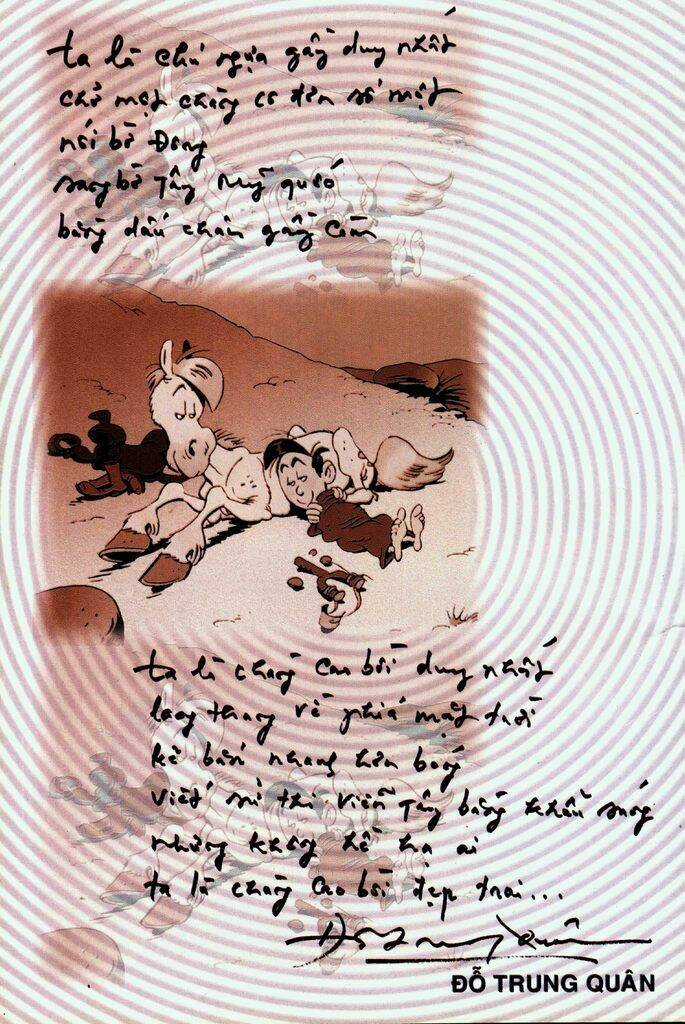 ta là chú ngựa gầy duy nhất
chở một chàng có tên số một
nơi bờ Đông
sang bờ Tây Mỹ quốc
bằng dấu chân gầy còm
ta là chàng cao bồi duy nhất
lang thang về phía mặt trời
kẻ bắn nhanh hơn bóng
viết sử thi viễn Tây bằng khẩu súng
nhưng không hề hạ ai
ta là chàng cao bồi đẹp trai...
ĐỖ TRUNG QUÂN